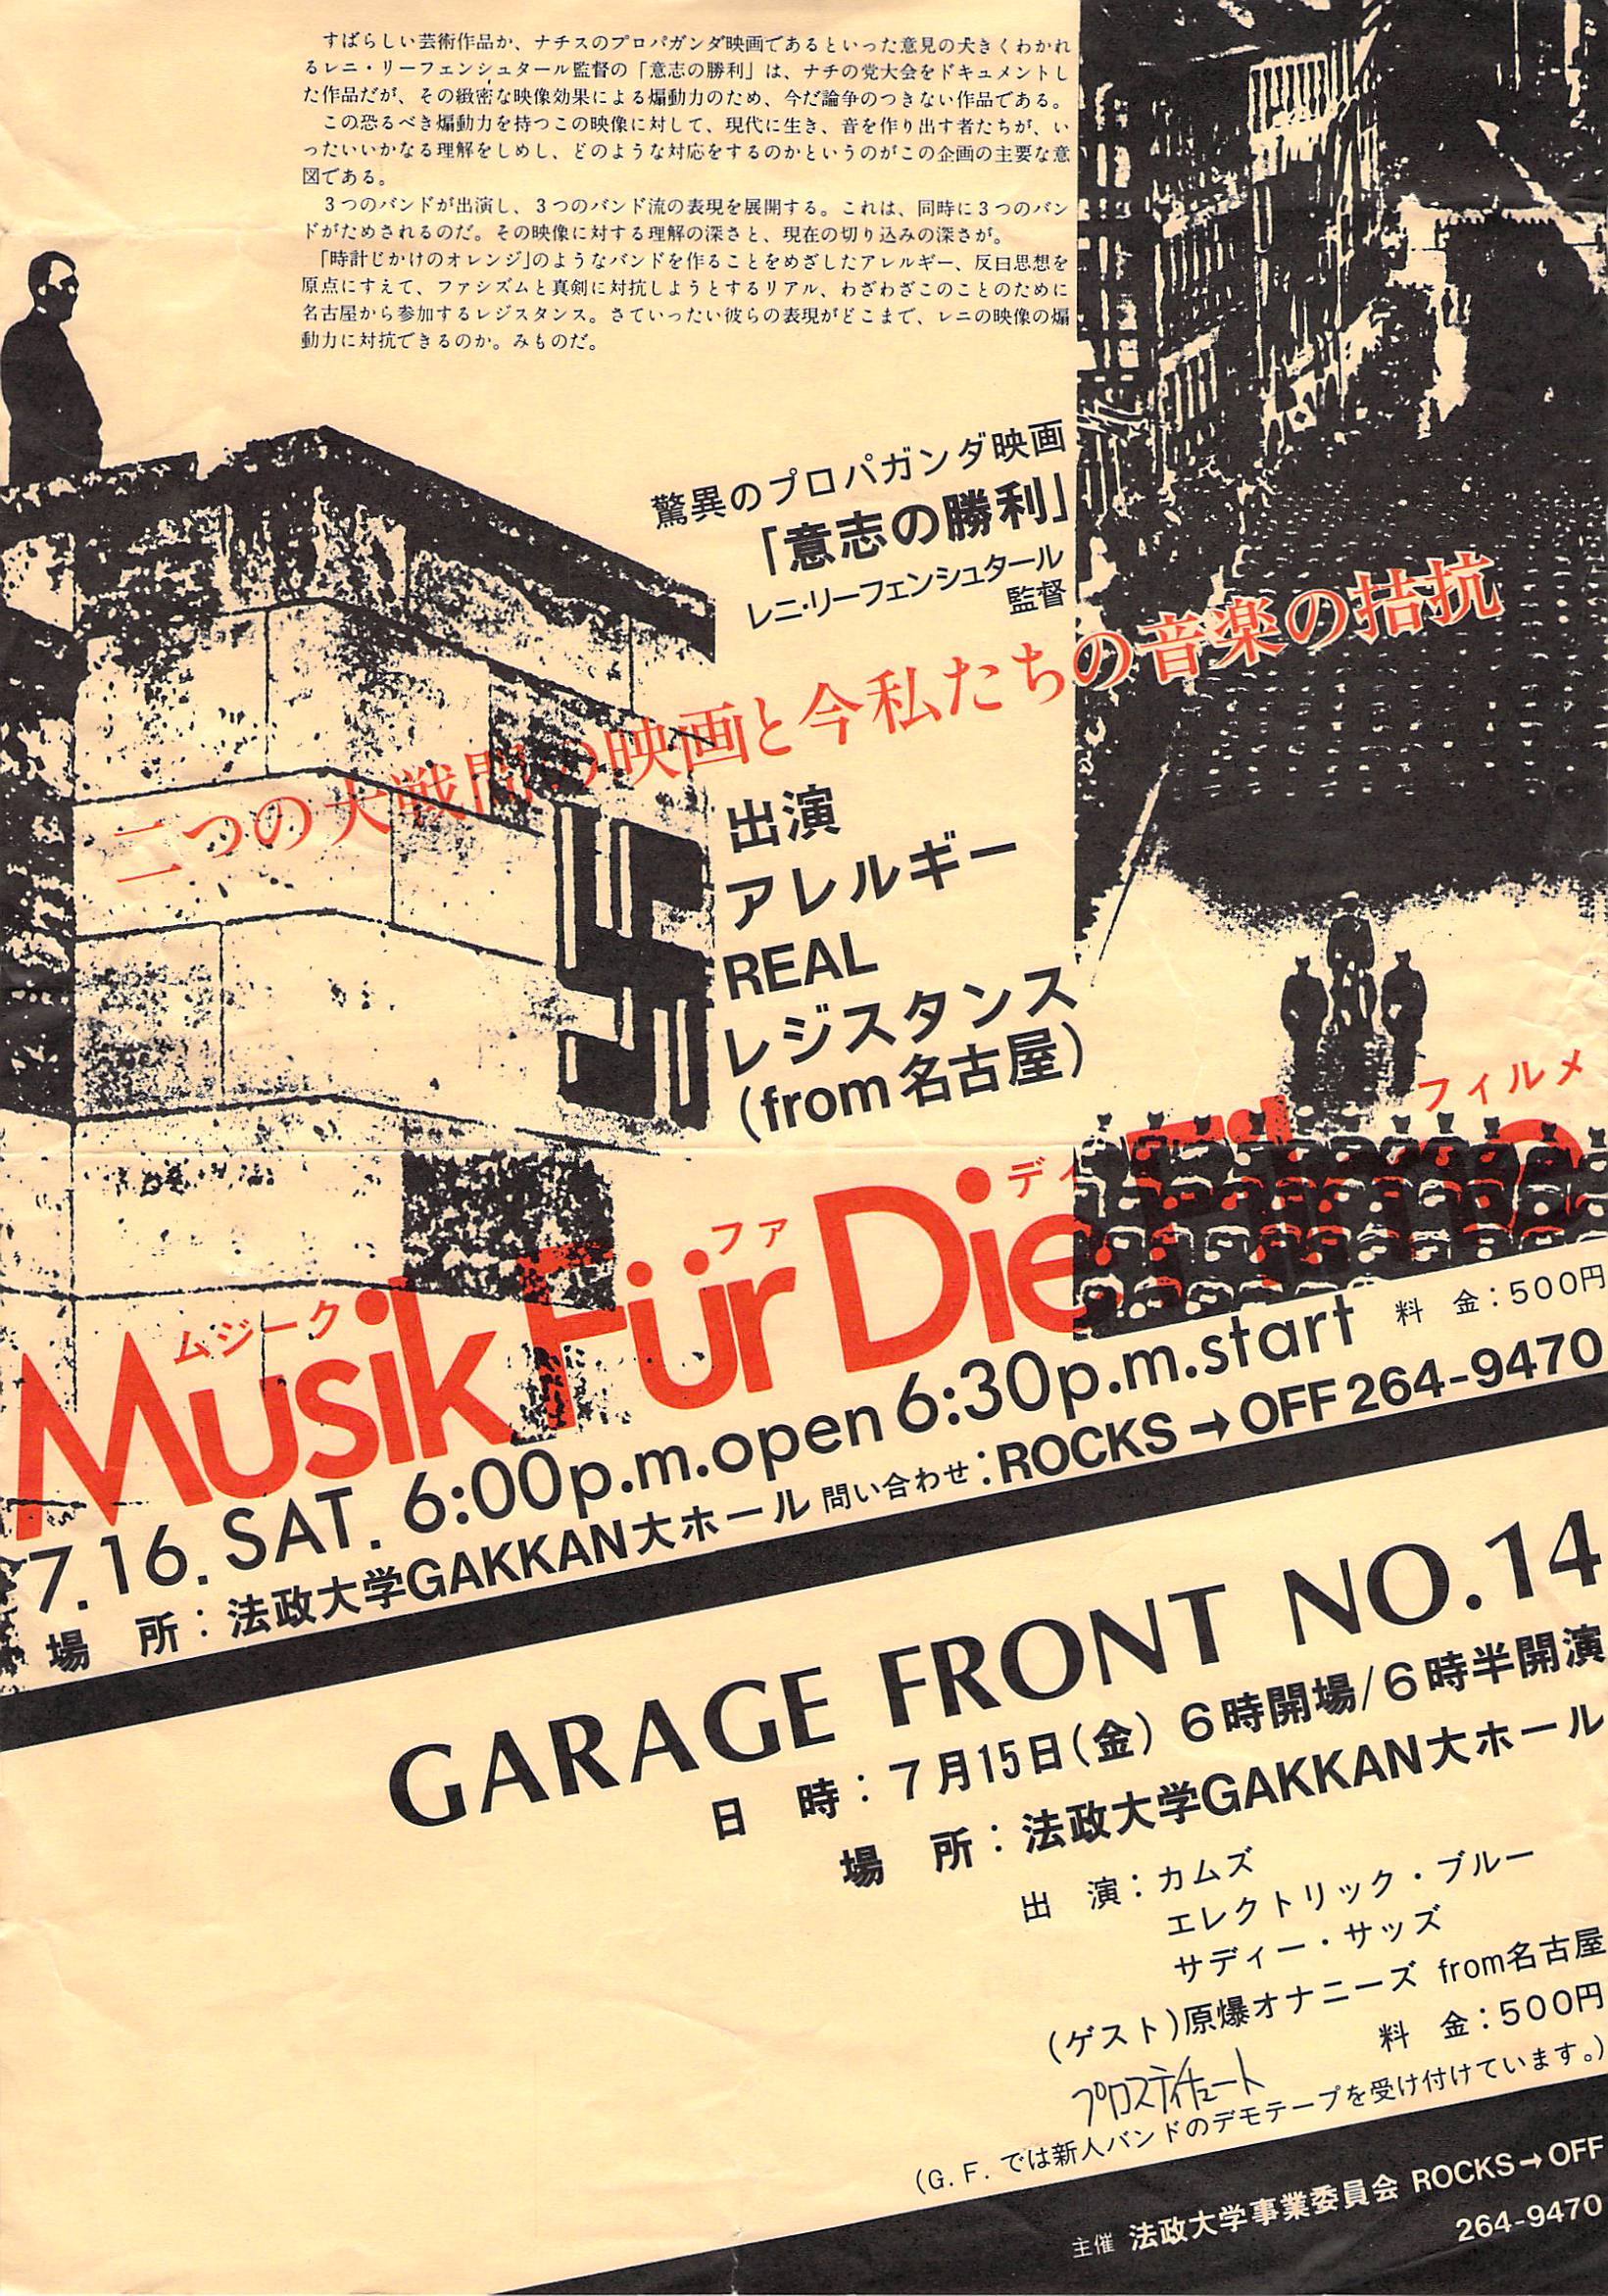 すばらしい芸術作品か、ナチスのプロパガンダ映画であるといった意見の大きくわかれ
るレニ・リーフェンシュタール監督の「意志の勝利」は、ナチの党大会をドキュメントし
た作品だが、その緻密な映像効果による煽動力のため、今だ論争のつきない作品である。
この恐るべき煽動力を持つこの映像に対して、現代に生き、音を作り出す者たちが、い
ったいいかなる理解をしめし、どのような対応をするのかというのがこの企画の主要な意
図である。
３つのバンドが出演し、３つのバンド流の表現を展開する。これは、同時に３つのバン
ドがためされるのだ。その映像に対する理解の深さと、現在の切り込みの深さが。
「時計じかけのオレンジ」のようなバンドを作ることをめざしたアレルギー、反日思想を
原点にすえて、ファシズムと真剣に対抗しようとするリアル、わざわざこのことのために
名古屋から参加するレジスタンス。さていったい彼らの表現がどこまで、レニの映像の煽
動力に対抗できるのか。みものだ。
驚異のプロパガンダ映画
「意志の勝利」
レニ・リーフェンシュタール
監督
二つの大戦間の映画と今私たちの音楽の拮抗
出演
アレルギー
REAL
レジスタンス
(from名古屋)
ムジーク ファ ディ フィルメ
Musik Für Die Filme
7.16. SAT. 6:00p.m.open 6:30p.m.start 料　金：500円
場　所：法政大学GAKKAN大ホール 問い合わせ：ROCKS→OFF 264-9470
GARAGE FRONT NO.14
日　時：７月15日(金) ６時開場/６時半開演
場　所：法政大学GAKKAN大ホール
出　演：カムズ
エレクトリック・ブルー
サディー・サッズ
(ゲスト)原爆オナニーズ from名古屋
プロスティチュート
料　金：500円
(G.F.では新人バンドのデモテープを受け付けています。)
主催 法政大学事業委員会 ROCKS→OFF
264-9470